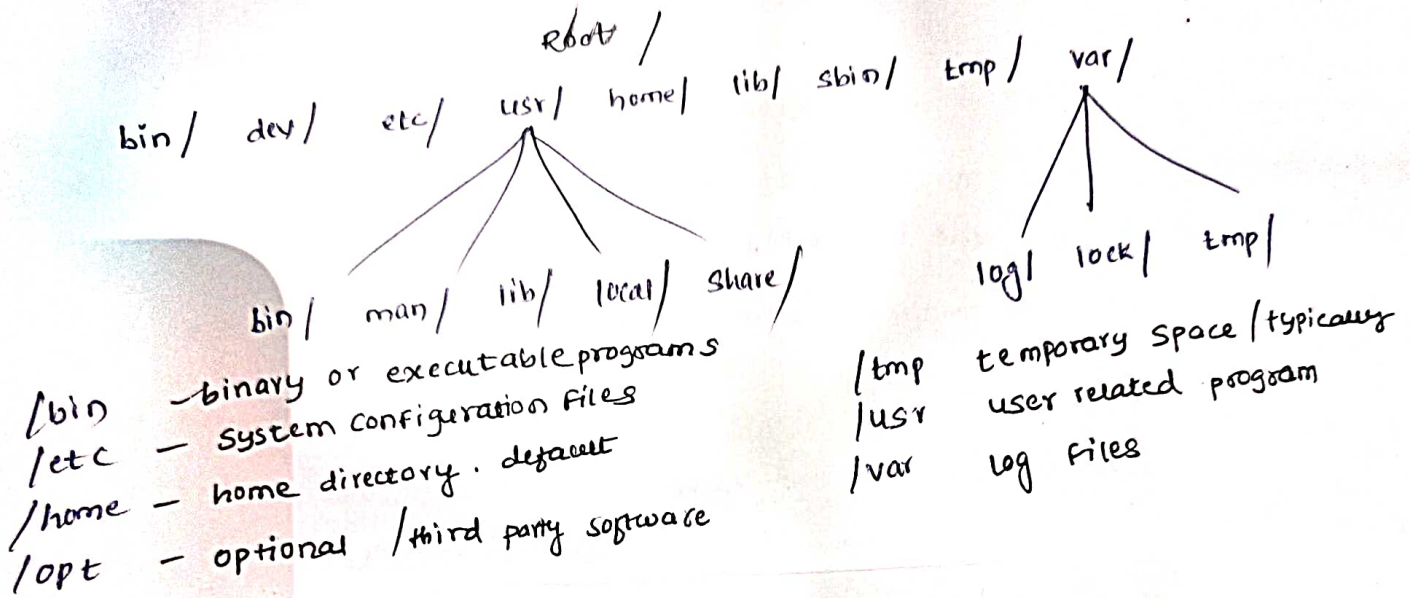 Root /
bin/ dev/ etc/ usr/ home/ lib/ sbin/ tmp/ var/
bin/ man/ lib/ local/ share/
log/ lock/ tmp/
/bin – binary or executable programs
/etc – system configuration files
/home – home directory. default
/opt – optional /third party software
/tmp temporary space /typically
/usr user related program
/var log files